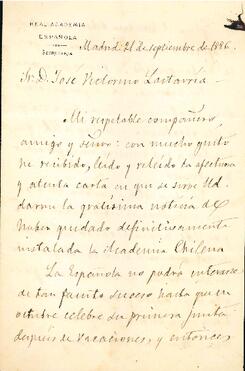 REAL ACADEMIA
ESPAÑOLA
SECRETARÍA
Madrid 21 de septiembre de 1886.
Sr. D. José Victorino Lastarria
Mi respetable compañero,
amigo y señor: con mucho gusto
he recibido, leído y releído la afectuosa
y atenta carta en que se sirve Ud.
darme la gratísima noticia de
haber quedado definitivamente
instalada la Academia Chilena
La Española no podrá enterarse
de tan fausto suceso hasta que en
octubre celebre su primera junta
después de vacaciones, y entonces,